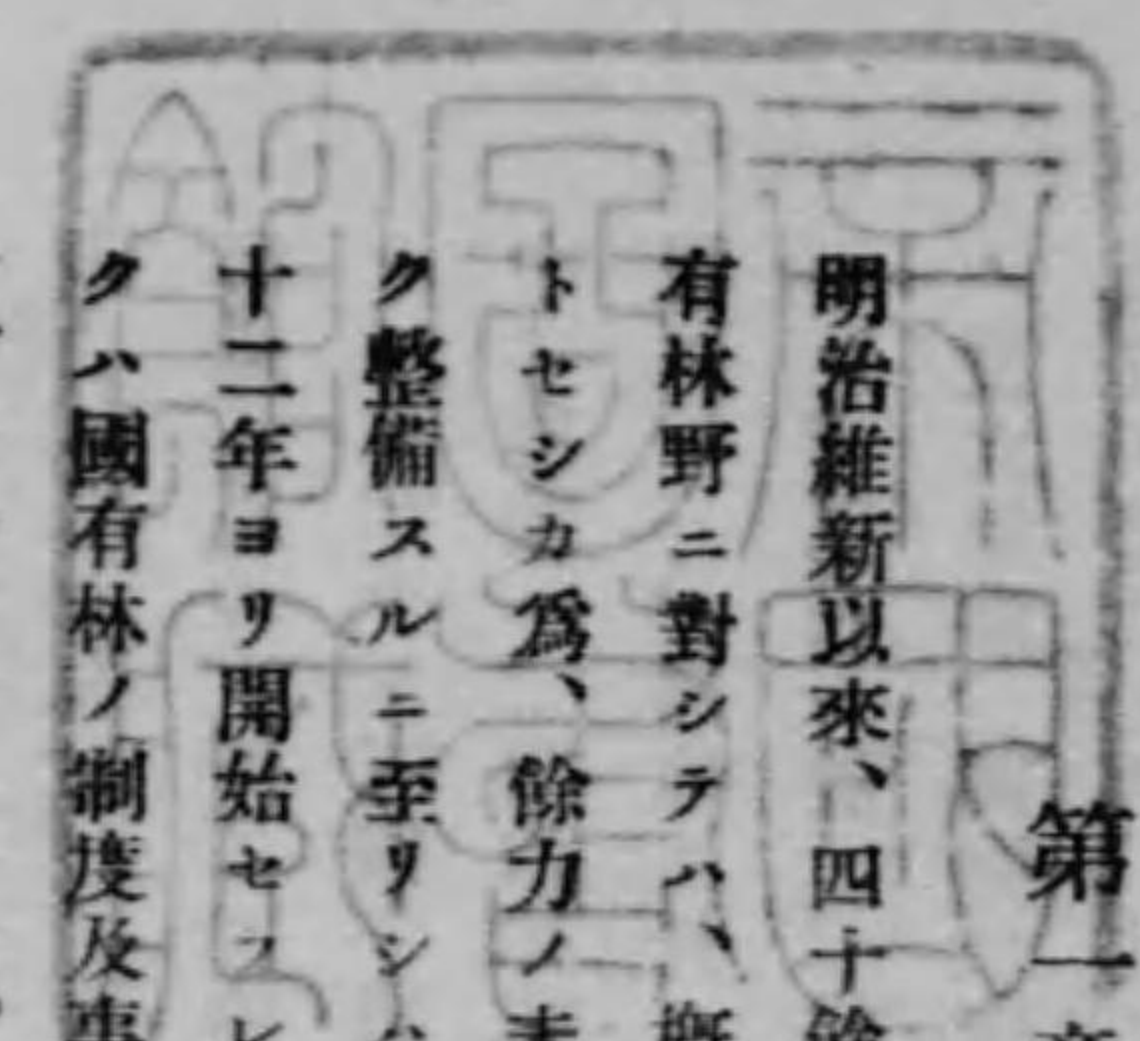 第一
明治維新以來、四十餘
有林野ニ對シテハ、概
トセシカ爲、餘力ノ
ク整備スルニ至リシハ
十二年ヨリ開始セラレ
クハ國有林ノ制度及事